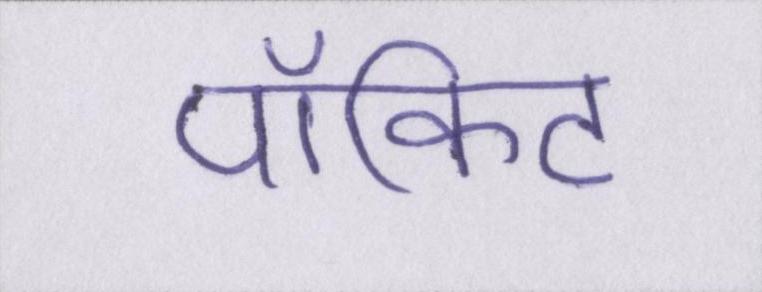 पॉकिट